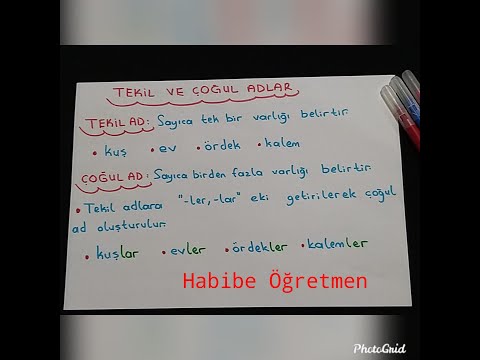 TEKİL VE ÇOĞUL ADLAR
TEKİL AD: Sayıca tek bir varlığı belirtir.
• kuş • ev • ördek • kalem
ÇOĞUL AD: Sayıca birden fazla varlığı belirtir.
• Tekil adlara "-ler, -lar" eki getirilerek çoğul
ad oluşturulur.
• kuşlar • evler • ördekler • kalemler
Habibe Öğretmen
PhotoGrid